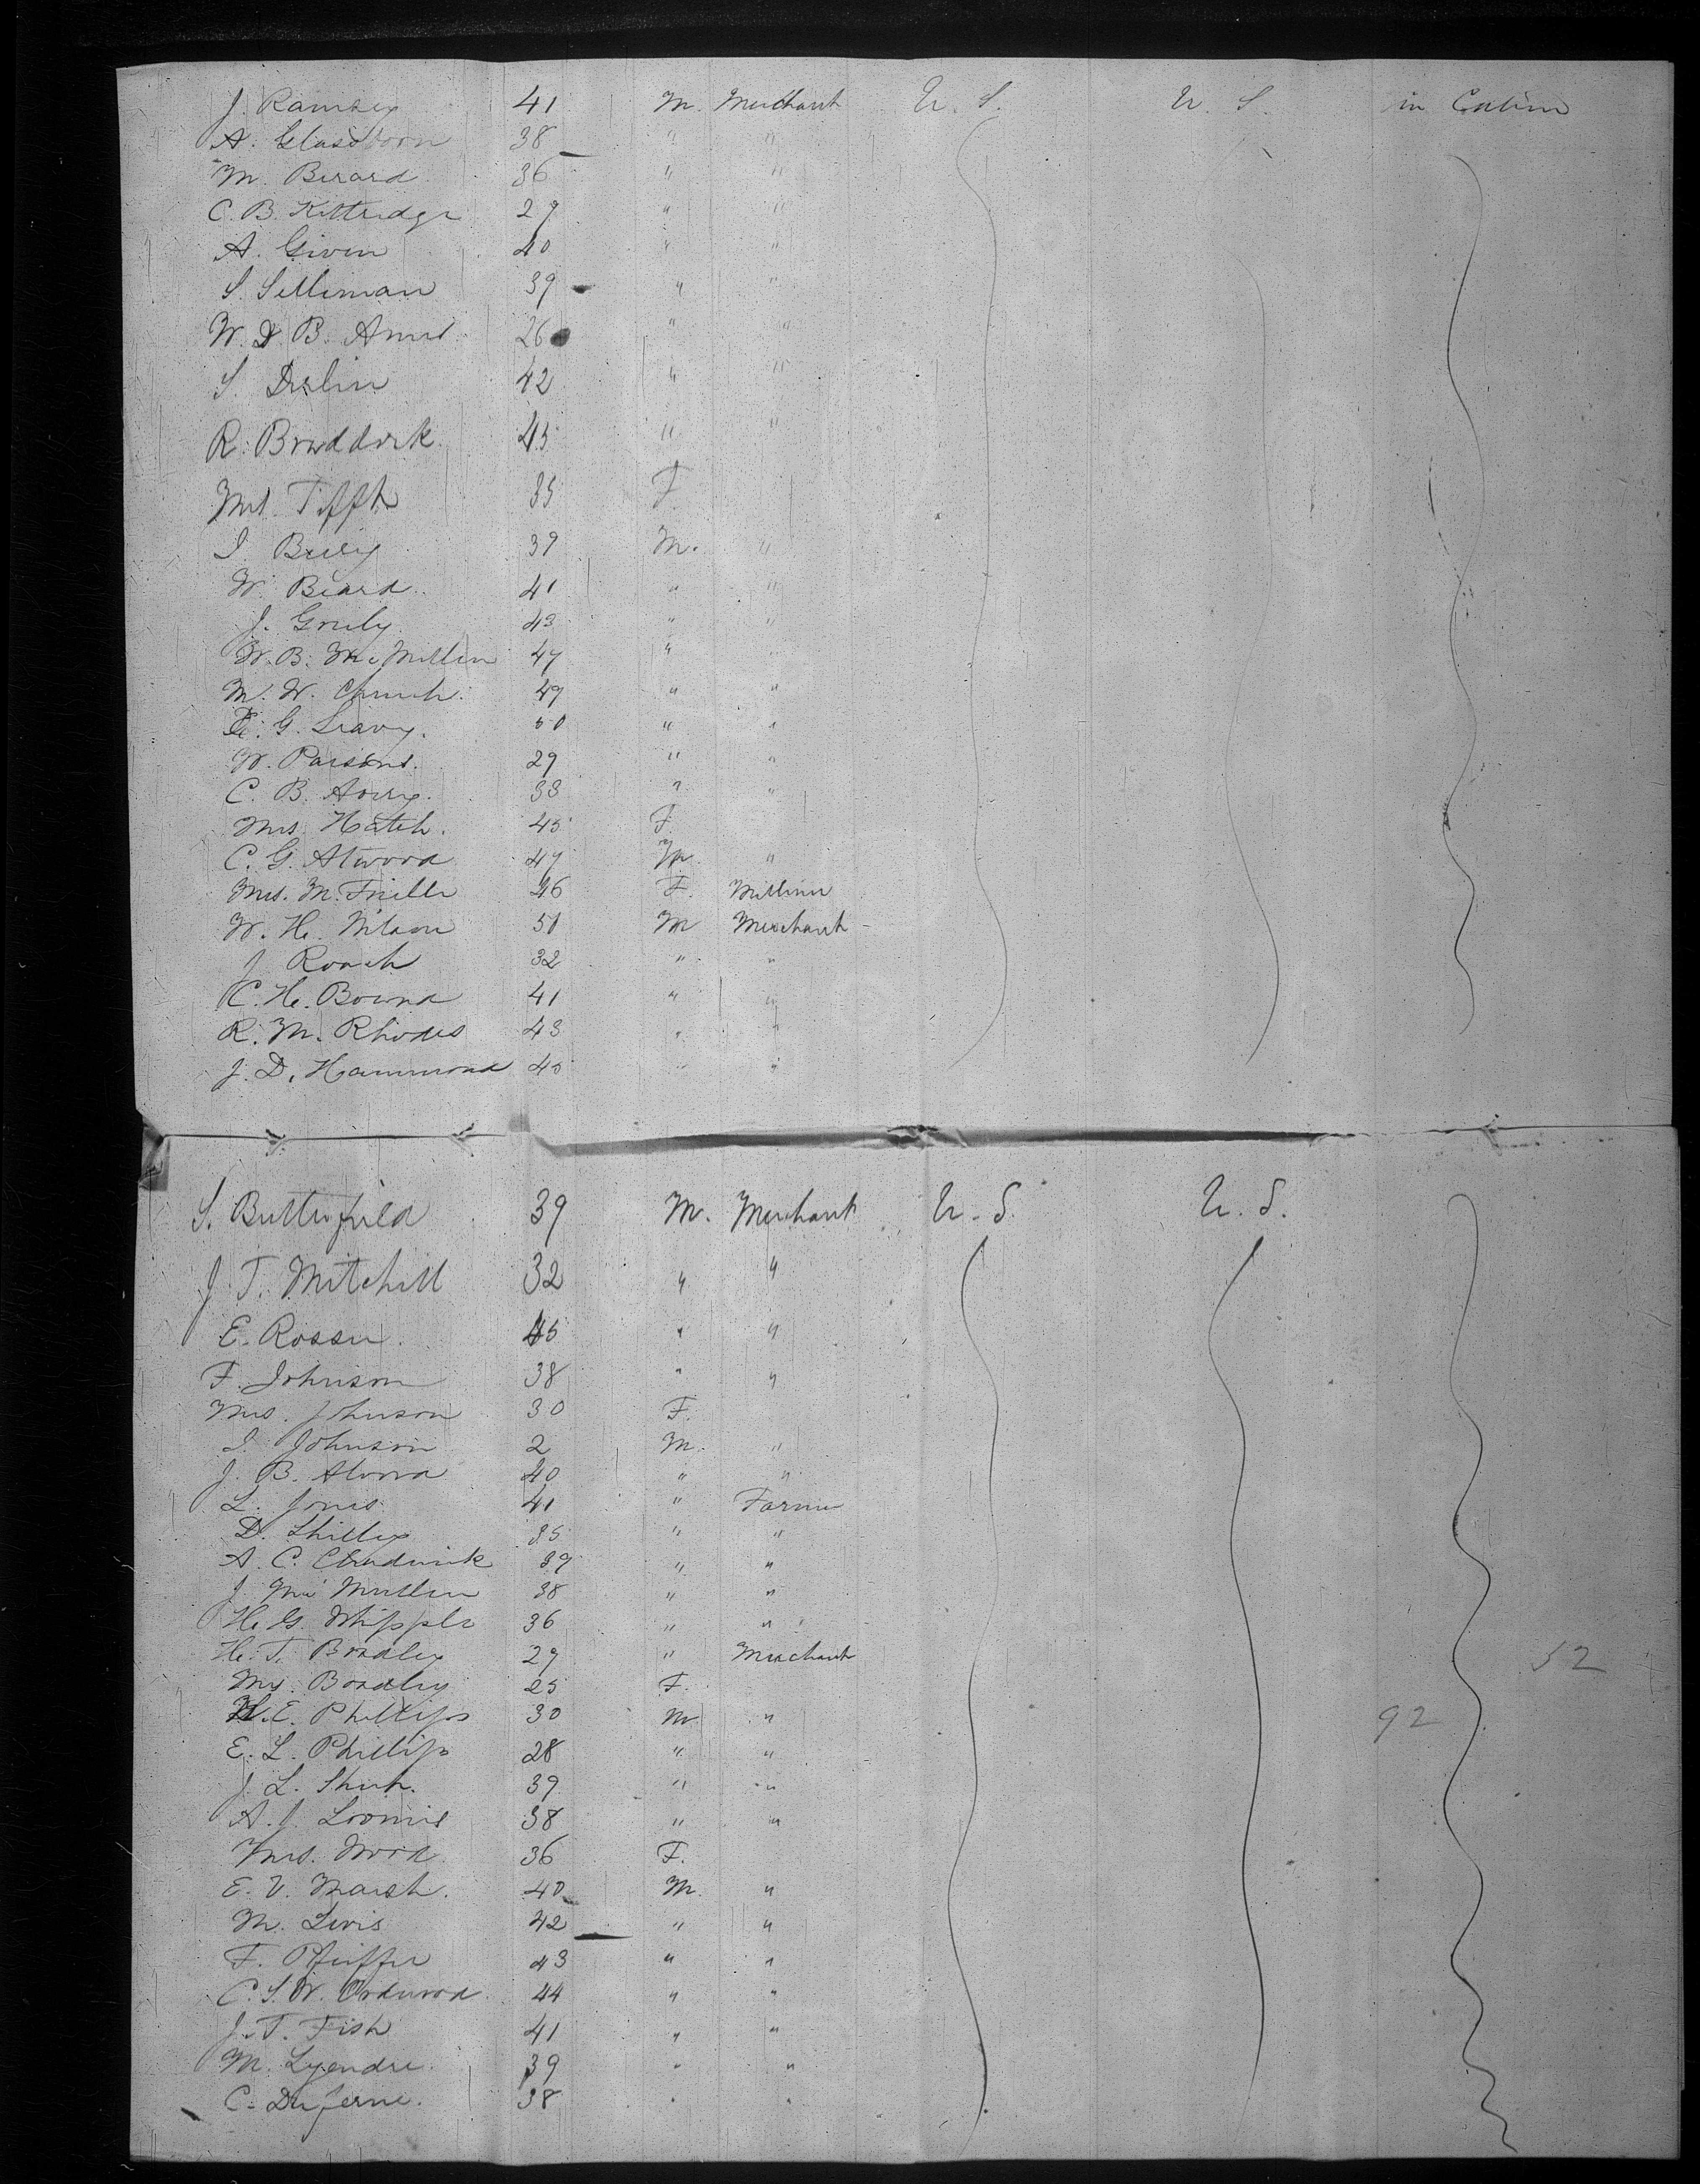 J. Ramsey 41 M. Merchant U. S. U. S. in Cabin
A. Glassborn 38 " "
M. Berard 36 " "
C. B. Kittredge 29 " "
A. Given 40 " "
S. Selliman 39 " "
W. D. B. Ames 26 " "
S. Deslin 42 " "
R. Braddock 45 " "
Mrs. Tifft 35 F.
I. 39 M. "
W. Beard 41 " "
J. Gruly 43 " "
W. B. McMillen 47 " "
M. W. Church 49 " "
G. Leavy. 50 " "
W. Parsons. 29 " "
C. B. Avery. 33 " "
Mrs. Hatch. 45 F.
C. G. Atwood 47 M "
Mrs. M. 46 F. Milliner
W. H. Nilson 51 M Merchant
J Roach 32 " "
C. H. Bound 41 " "
R. M. Rhodes 43 " "
J. D. Hammond 40 " "
S. Butterfield 39 M. Merchant U. S. U. S.
J. T. Mitchell 32 " "
E. Rosser 45 " "
F. Johnson 38 " "
Mrs. Johnson 30 F.
I. Johnson 2 M. "
J. B. Alvord 40 " "
L. Jones 41 " Farmer
D. Shilley 35 " "
A. C. Chadwick 39 " "
J. McMullen 38 " "
H. G. Whipple 36 " "
H. T. Bradley 29 " Merchant 52
Mrs. Bradley 25 F.
H. E. Phillips 30 M " 92
E. L. Phillips 28 " "
J. L. Shuh. 39 " "
A. J. Loomis 38 " "
Mrs. Wood 36 F.
E. V. Marsh. 40 M. "
M. Levis 42 " "
F. Pfeiffer 43 " "
C. S. W. Ordwood 44 " "
J. T. Fish 41 " "
M. Lyendre. 39 " "
C. Duferne. 38 " "